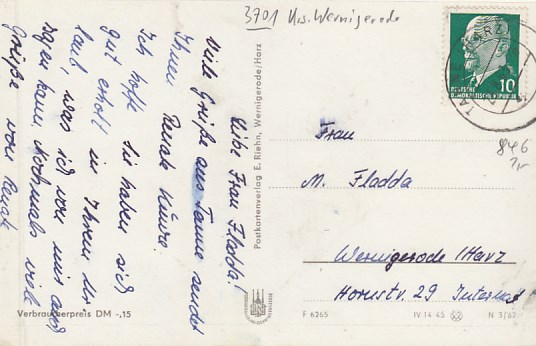 3701 Krs. Wernigerode
Liebe Frau Fladda!
Viele Grüße aus Tanne sendet
Ihnen Renate
Ich hoffe Sie haben sich
gut erholt in Ihrem Ur
laub, was ich von mir auch
sagen kann. Nochmals viele
Grüße von Renate
Postkartenverlag E. Riehn, Wernigerode/Harz
DEUTSCHE
DEMOKRATISCHE REPUBLIK
10
846
Frau
M. Fladda
Wernigerode/Harz
Hornstr. 29 Internat
Verbraucherpreis DM -,15
F 6265
IV 14 45
N 3/62